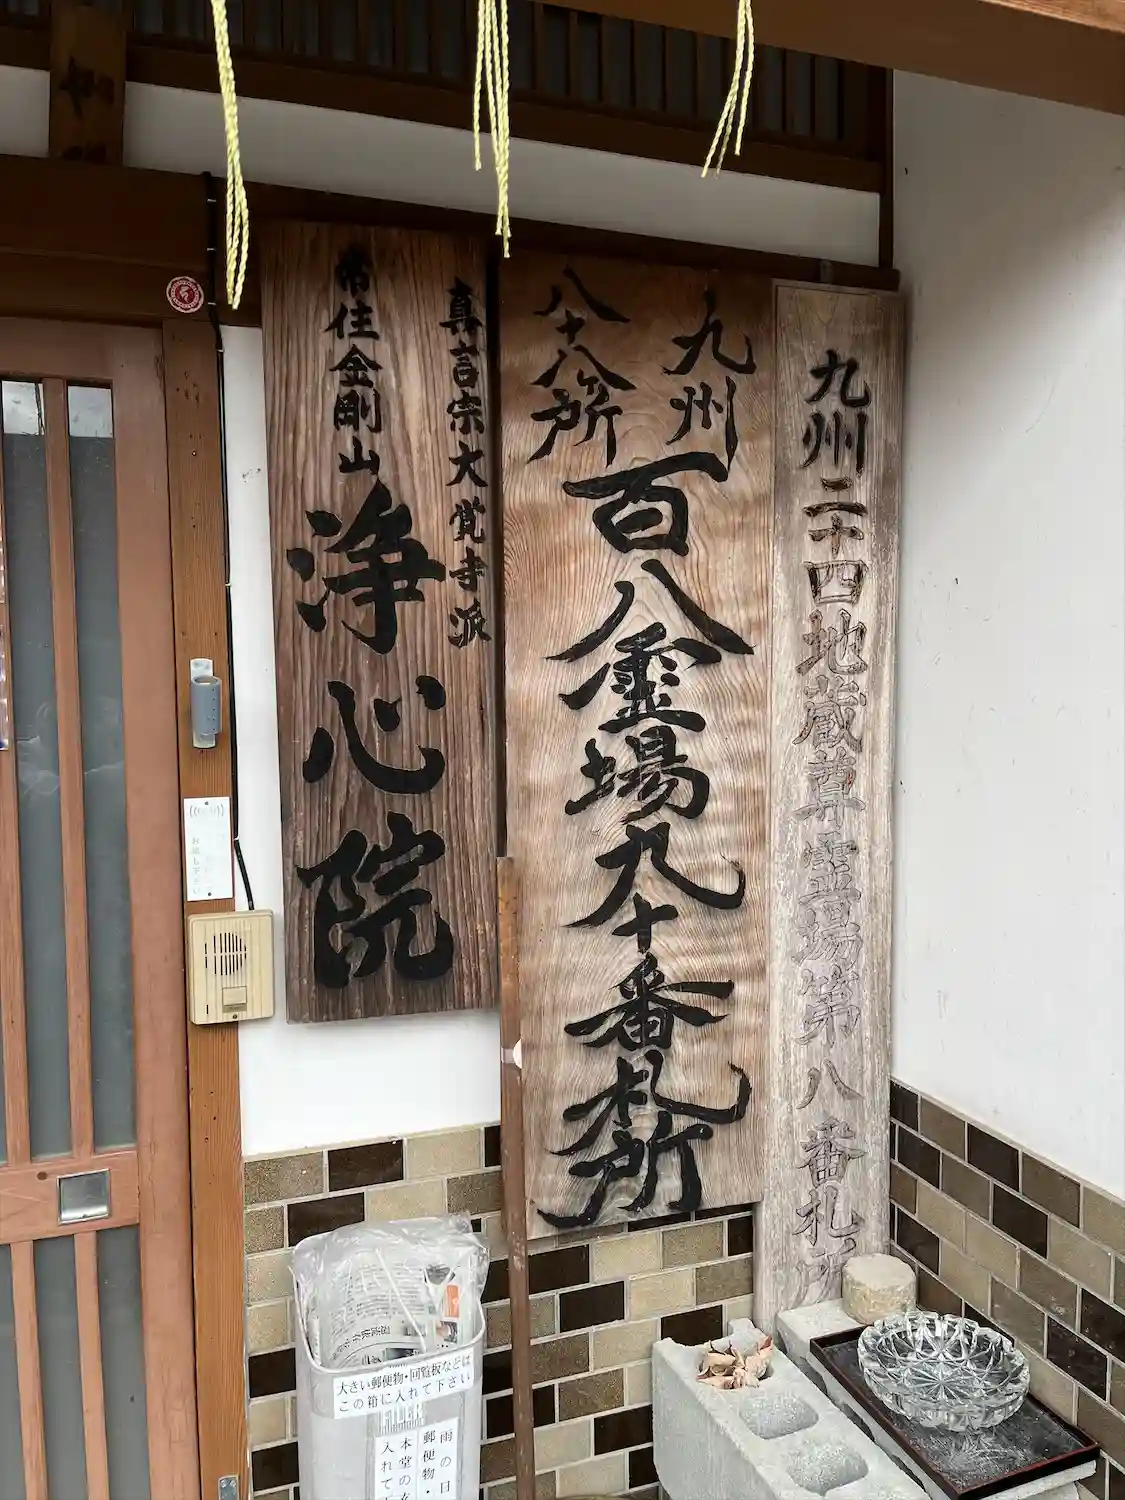 九州二十四地蔵尊霊場第八番札所
九州
八十八ヶ所
百八霊場九十番札所
真言宗大覚寺派
常住金剛山
浄心院
お越し下さい
大きい郵便物・回覧板などは
この箱に入れて下さい
雨の日
郵便物・
本堂の
入れて